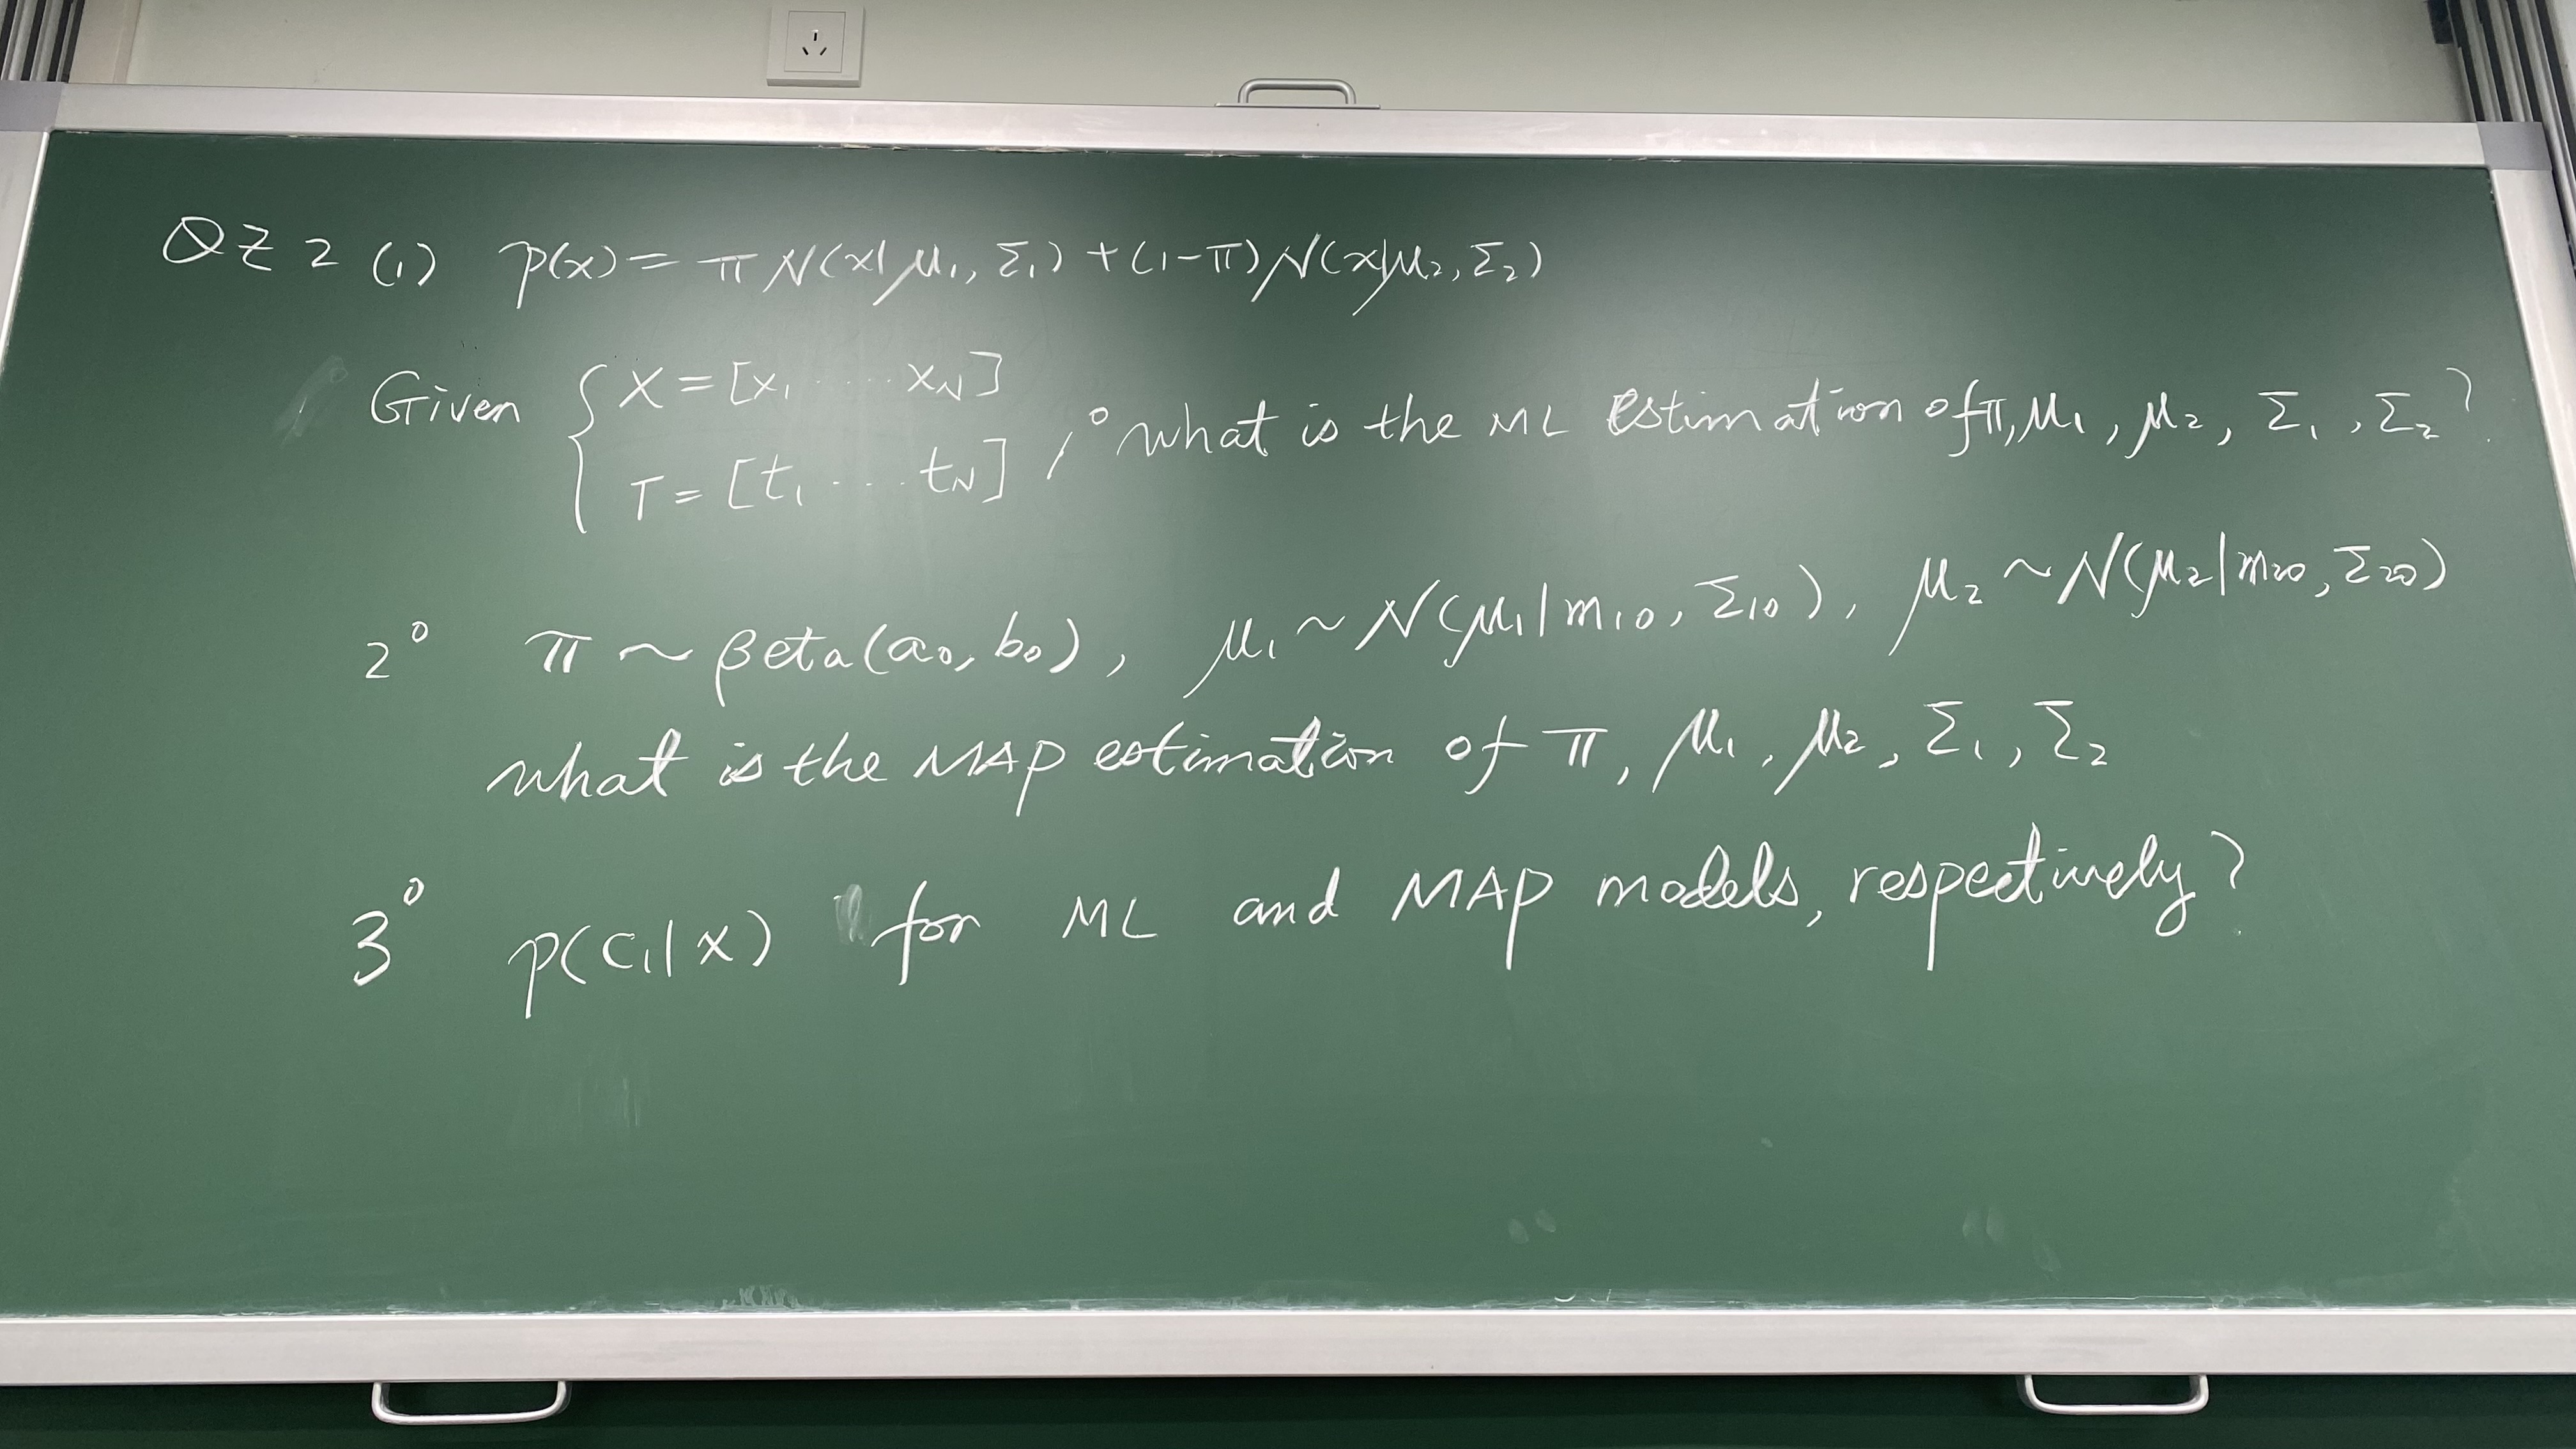 QZ 2 (1) p(x) = π N(x|μ₁, Σ₁) + (1-π) N(x|μ₂, Σ₂)
Given { X = [x₁ .... x_N]
T = [t₁ .... t_N] , 1° what is the ML Estimation of π, μ₁, μ₂, Σ₁, Σ₂?
2° π ~ Beta(a₀, b₀), μ₁ ~ N(μ₁|m₁₀, Σ₁₀), μ₂ ~ N(μ₂|m₂₀, Σ₂₀)
what is the MAP estimation of π, μ₁, μ₂, Σ₁, Σ₂
3° p(C₁|x) for ML and MAP models, respectively?